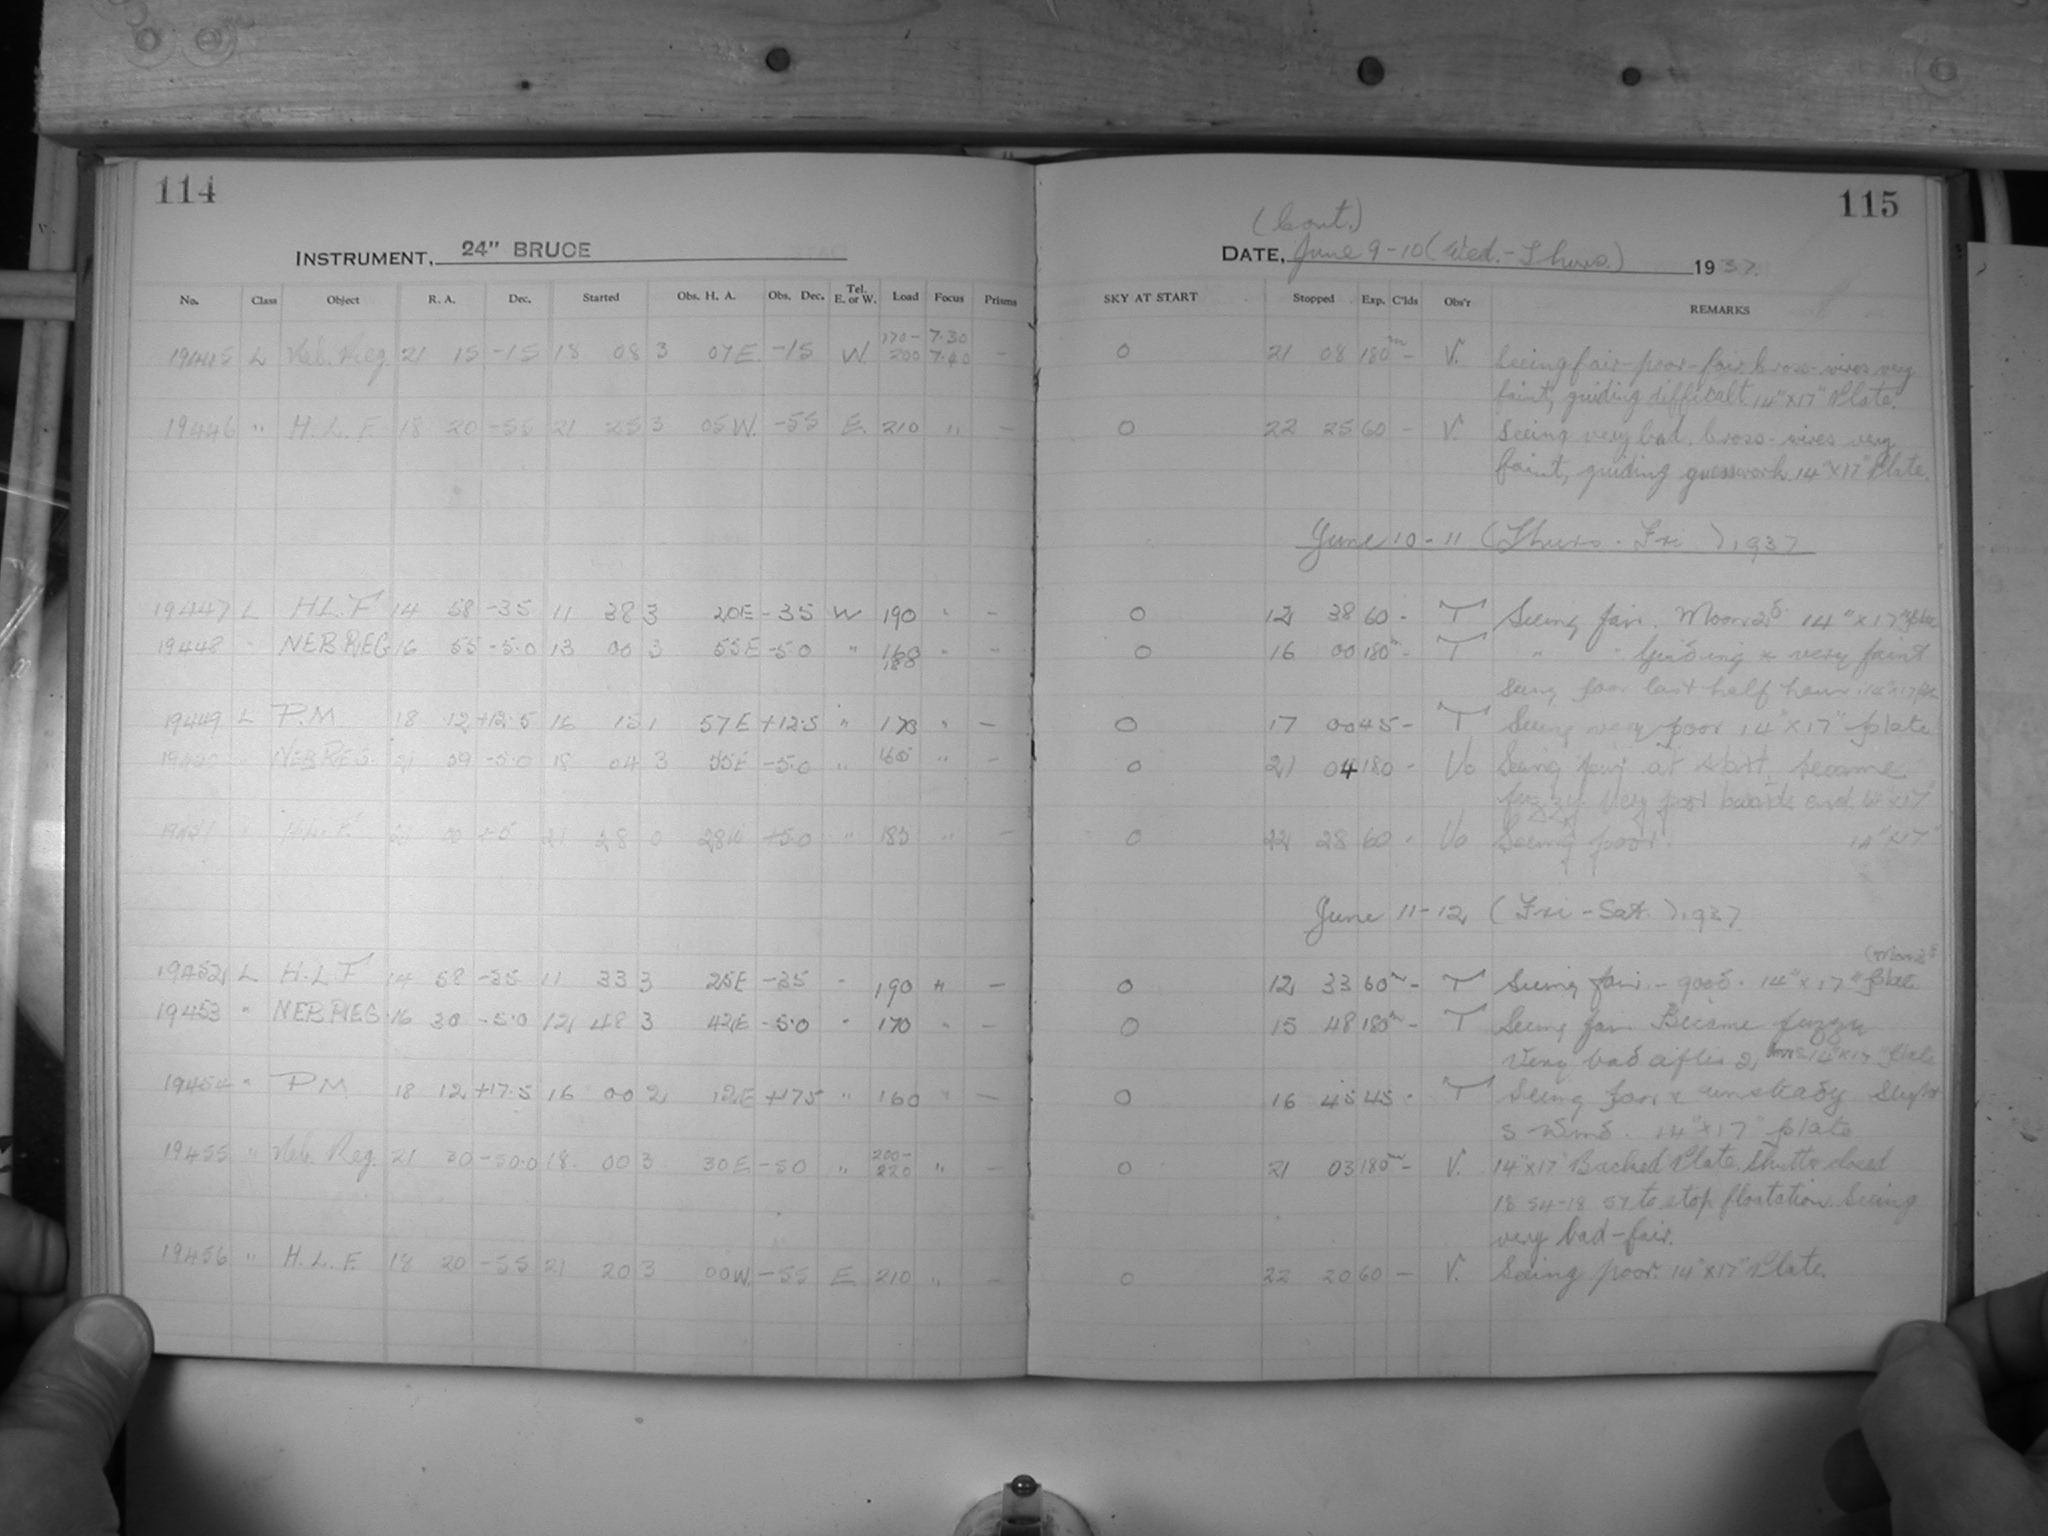 114
INSTRUMENT, 24" BRUCE
No. Class Object R. A. Dec. Started Obs. H. A. Obs. Dec. Tel. E. or W. Load Focus Prisms
19445 L Neb. Reg. 21 15 -15 18 08 3 07E. -15 W. 170-200 7.30 7.40 -
19446 " H. L. F. 18 20 -55 21 25 3 05W. -55 E. 210 " -
19447 L H.L.F 14 58 -35 11 38 3 20E -35 W 190 " -
19448 " NEB REG 16 55 -5.0 13 00 3 55E -50 " 188 " -
19449 L P.M. 18 12 +12.5 16 15 1 57E +12.5 " " -
NEB REG. 21 09 -5.0 18 04 3 55E -5.0 " 165 " -
H.L.F. 21 28 0 28W +5.0 " 185 " -
19452 L H.L.F 14 58 -35 11 33 3 25E -35 " 190 " -
19453 " NEB REG 16 30 -5.0 12 48 3 42E -5.0 " 170 " -
19454 " PM 18 12 +17.5 16 00 2 12E +175 " 160 " -
19455 " Neb. Reg. 21 30 -50.0 18 00 3 30E -50 " 200-220 " -
19456 " H. L. F. 18 20 -55 21 20 3 00W. -55 E 210 " -
115
(Cont.)
DATE, June 9-10 (Wed.-Thurs.) 1937.
SKY AT START Stopped Exp. C'lds Obs'r REMARKS
0 21 08 180m - V. Seeing fair-poor-fair. Cross-wires very
faint, guiding difficult. 14"x17" Plate.
0 22 25 60 - V. Seeing very bad. Cross-wires very
faint, guiding guesswork. 14"x17" Plate.
June 10-11 (Thurs-Fri.) 1937
0 12 38 60 - T Seeing fair. 14"x17" plate
0 16 00 180m - T " " very faint
seeing poor last half hour. 14"x17"
0 17 00 45 - T Seeing very poor 14"x17" plate
0 21 04 180 - Vo Seeing fair at start, became
fuzzy. Very poor towards end. 14"x17"
0 22 28 60 - Vo Seeing poor. 14"x17"
June 11-12 (Fri-Sat.) 1937
0 12 33 60m - T Seeing fair-good. 14"x17" plate
0 15 48 180m - T Seeing fair Became fuzzy
Very bad after 2 14"x17" Plate
0 16 45 45 - T Seeing poor & unsteady Slight
S Wind. 14"x17" plate
0 21 03 180m - V. 14"x17" Backed Plate. Shutter closed
18 54-18 57 to stop floatation. Seeing
very bad-fair.
0 22 20 60 - V. Seeing poor. 14"x17" Plate.